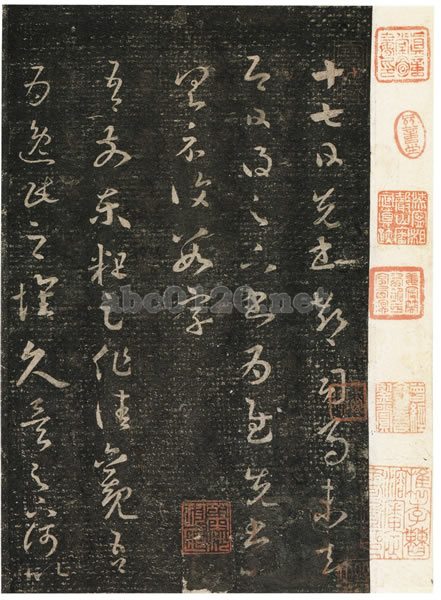 十七日先書郗司馬未去
即日得足下書為慰先書以
具示復數字
吾前東粗足作佳觀吾
為逸民之懷久矣足下何以
abc0120.net